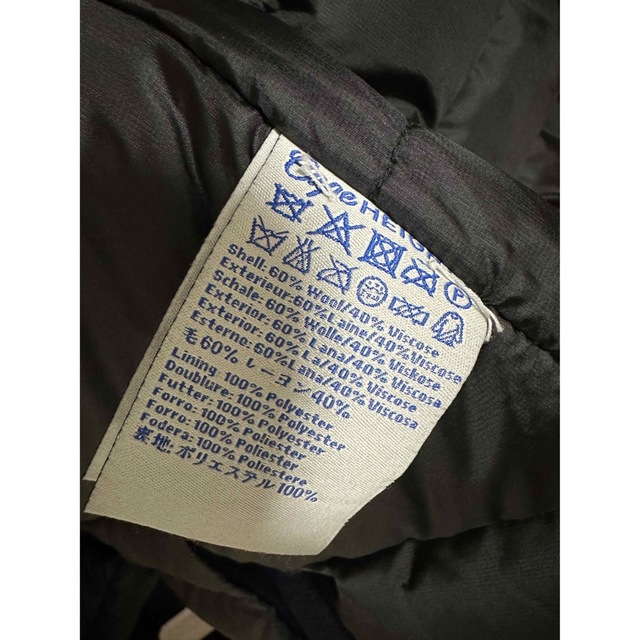 Shell: 60% Wool/40% Viscose
Exterieur: 60% Laine/40% Viscose
Schale: 60% Wolle/40% Viskose
Exterior: 60% Lana/40% Viscosa
Exterior: 60% La/40% Viscosa
Esterno: 60% Lana/40% Viscosa
毛60% レーヨン40%
Lining: 100% Polyester
Doublure: 100% Polyester
Futter: 100% Polyester
Forro: 100% Poliester
Forro: 100% Poliester
Fodera: 100% Poliestere
裏地: ポリエステル 100%